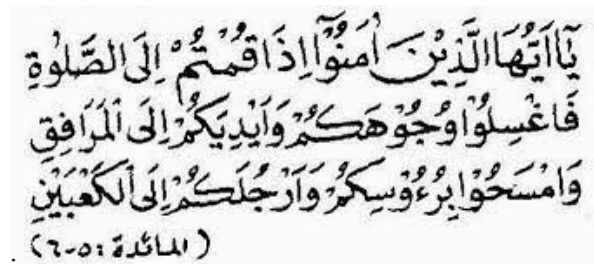 يٰٓاَيُّهَا الَّذِيْنَ اٰمَنُوْٓا اِذَا قُمْتُمْ اِلَى الصَّلٰوةِ
فَاغْسِلُوْا وُجُوْهَكُمْ وَاَيْدِيَكُمْ اِلَى الْمَرَافِقِ
وَامْسَحُوْا بِرُءُوْسِكُمْ وَاَرْجُلَكُمْ اِلَى الْكَعْبَيْنِ
(المائدة : ٥-٦) .